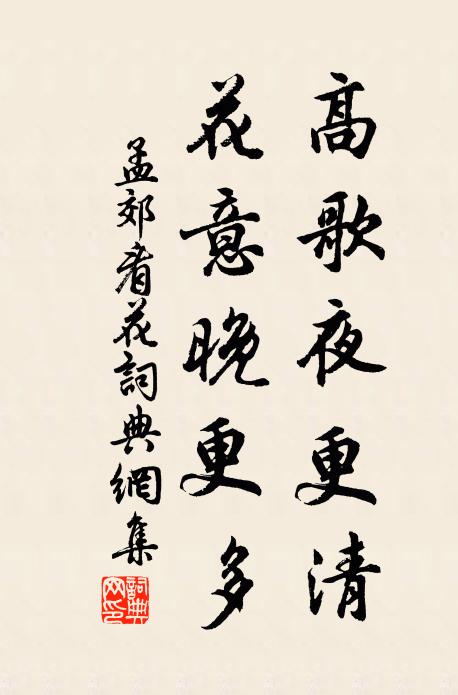 高歌夜更清
花意晚更多
孟郊看花詞典網集
詞典网印